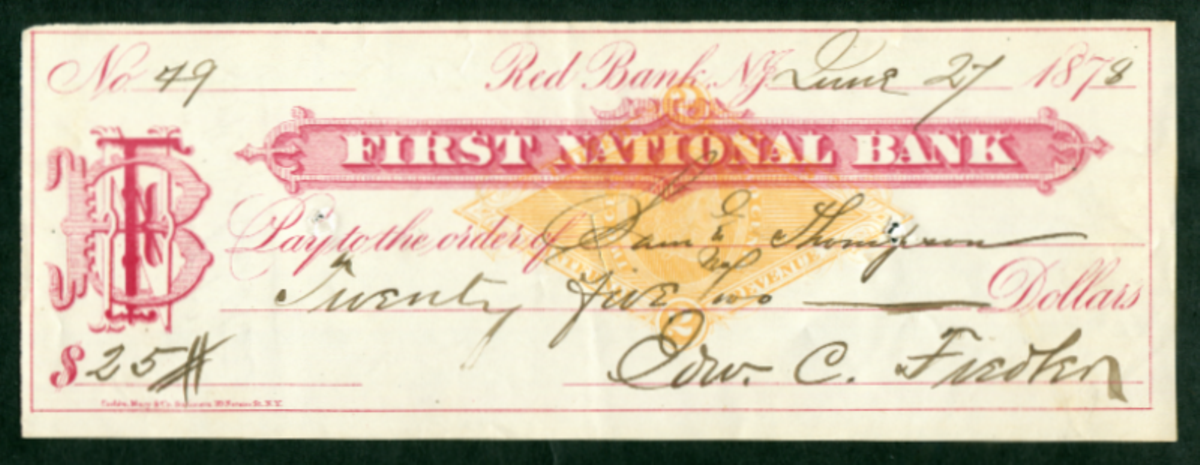 No. 49 Red Bank, NJ. June 27 1878
FIRST NATIONAL BANK
FNB
Pay to the order of Saml Thompson
Twenty five no/100 Dollars
$ 25
Edw. C.
2
REVENUE
2